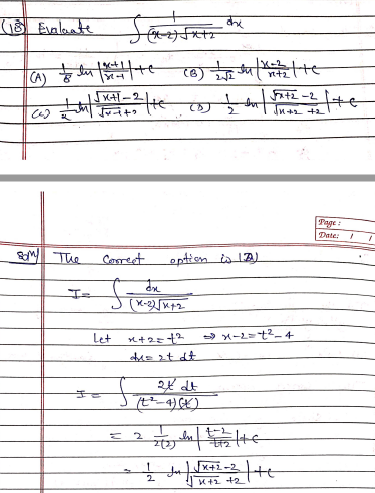 (18) Evaluate ∫ 1/((x-2)√x+2) dx
(A) 1/8 ln |(x+1)/(x-1)| + c (B) 1/(2√2) ln |(x-2)/(x+2)| + c
(C) 1/2 ln |(√x+1 - 2)/(√x-1 + 2)| + c (D) 1/2 ln |(√x+2 - 2)/(√x+2 + 2)| + c
Page :
Date: / /
Solⁿ) The Correct option is (D)
I = ∫ dx/((x-2)√x+2)
Let x+2 = t² ⇒ x-2 = t²-4
dx = 2t dt
I = ∫ 2t dt/((t²-4)(t))
= 2 1/2(2) ln |(t-2)/(t+2)| + c
= 1/2 ln |(√x+2 - 2)/(√x+2 + 2)| + c